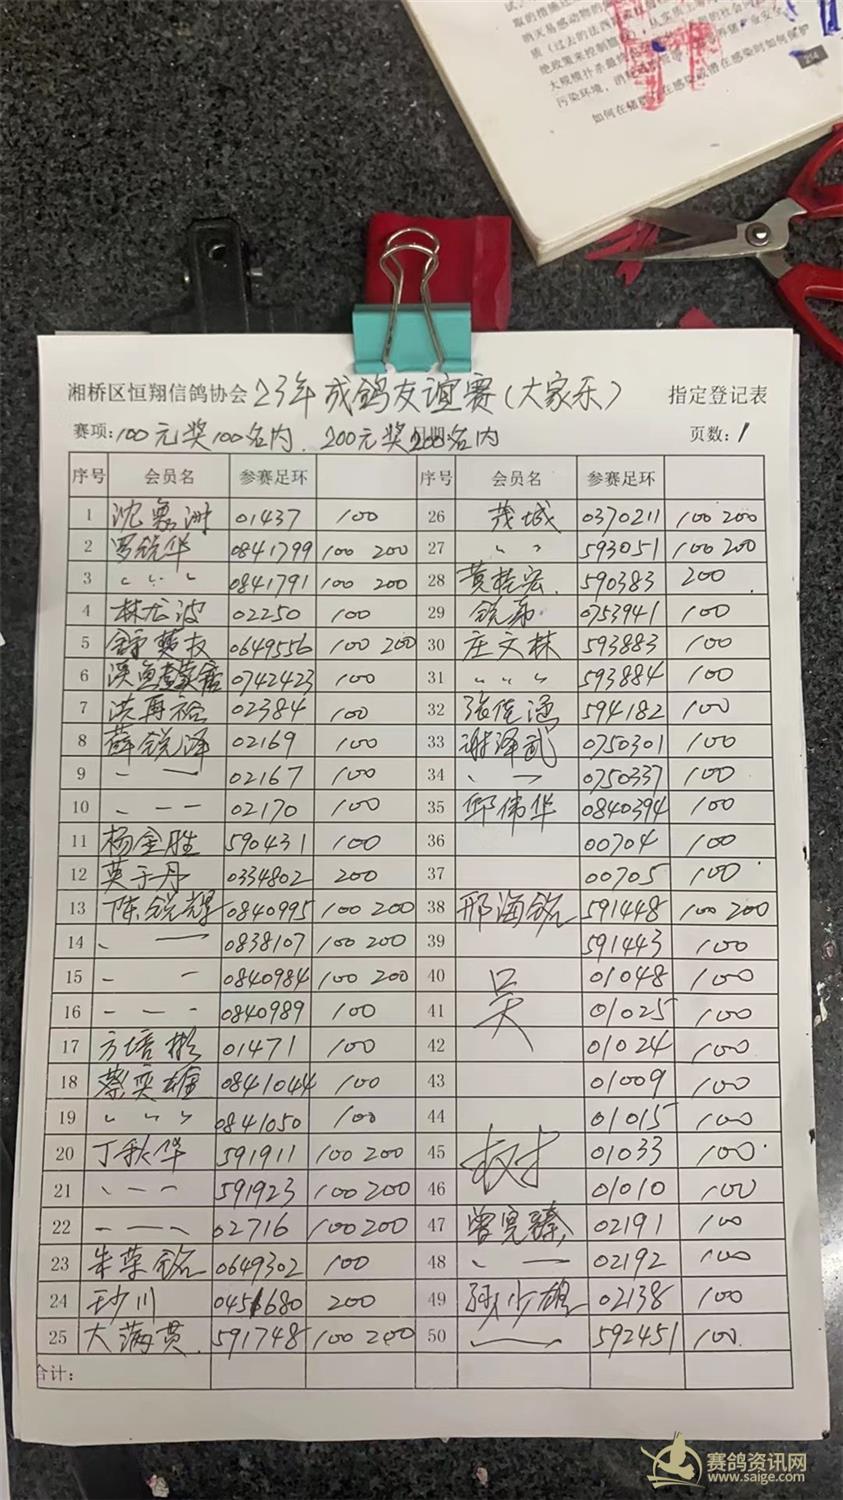 取的措施还
消灭易感动物的
质（过去的法西斯
绝政策来控制
大规模扑杀最终
污染环境，消耗
如何在猪瘟
在感染时如何保护
214
湘桥区恒翔信鸽协会 23年成鸽友谊赛（大家乐） 指定登记表
赛项：100元奖100名内．200元奖200名内 页数：1
序号 会员名 参赛足环 序号 会员名 参赛足环
1 沈 洲 01437 100 26 茂城 0370211 100 200
2 罗锐华 0841799 100 200 27 〃 〃 593051 100 200
3 〃 〃 〃 0841791 100 200 28 黄桂宏 590383 200
4 林 波 02250 100 29 锐 0753941 100
5 0649556 100 200 30 庄文林 593883 100
6 溪鱼 0742423 100 31 〃 〃 〃 593884 100
7 洪再裕 02384 100 32 张佳涵 594182 100
8 薛锐泽 02169 100 33 谢泽武 0750301 100
9 02167 100 34 0750337 100
10 02170 100 35 邱伟华 0840394 100
11 杨金胜 590431 100 36 00704 100
12 英子丹 0334802 200 37 00705 100
13 陈锐辉 0840995 100 200 38 邢海铭 591448 100 200
14 0838107 100 200 39 591443 100
15 0840984 100 200 40 吴 01048 100
16 0840989 100 41 01025 100
17 方培彬 01471 100 42 01024 100
18 蔡奕雄 0841044 100 43 01009 100
19 〃 〃 〃 0841050 100 44 01015 100
20 丁秋华 591911 100 200 45 树 01033 100
21 591923 100 200 46 01010 100
22 02716 100 200 47 曾宪臻 02191 100
23 朱荣铭 0649302 100 48 02192 100
24 川 0451680 200 49 孙少雄 02138 100
25 大满贯 591748 100 200 50 592451 100
合计：
赛鸽资讯网
www.saige.com